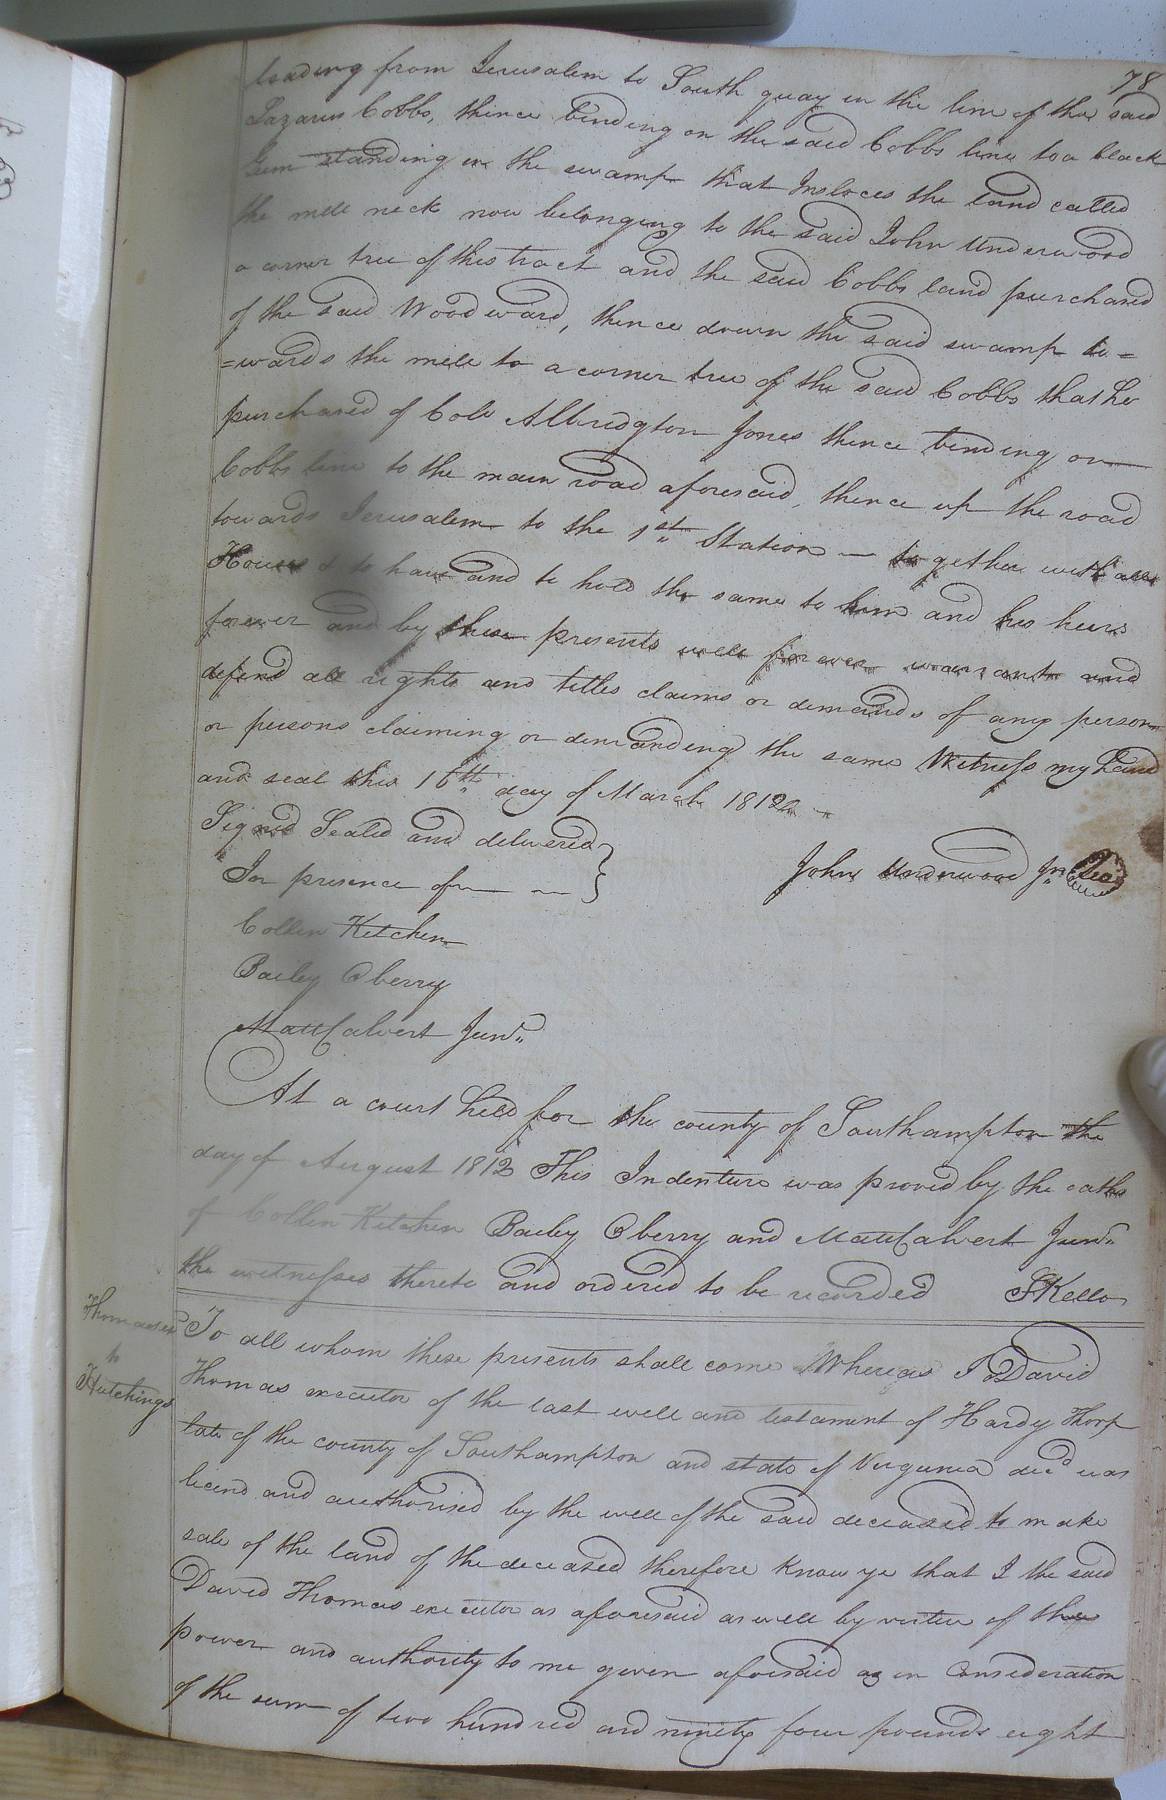 78
leading from Jerusalem to South quay in the line of the said
Lazarus Cobbs, thence binding on the said Cobbs line to a black
Gum standing in the swamp that Incloces the land called
the mill neck now belonging to the said John Underwood
a corner tree of this tract and the said Cobbs land purchased
of the said Woodward, thence down the said swamp to=
=wards the mill to a corner tree of the said Cobbs that he
purchased of Colo Albridgton Jones thence binding on
Cobbs line to the main road aforesaid, thence up the road
towards Jerusalem to the 1st Station — together with all
Houses & to have and to hold the same to him and his heirs
forever and by these presents will forever warrant and
defend all rights and titles claims or demands of any person
or persons claiming or demanding the same Witness my hand
and seal this 16th day of March 1812
Signed Sealed and delivered
In presence of
John Underwood Jr Seal
Collin Kitchen
Bailey Oberry
Matt Calvert Junr
At a court held for the county of Southampton the
day of August 1812 This Indenture was proved by the oaths
of Collin Kitchen Bailey Oberry and Matt Calvert Junr
the witnesses thereto and ordered to be recorded SKello
Thomas ex
to
Hutchings
To all whom these presents shall come Whereas I David
Thomas executor of the last will and testament of Hardy Thorp
late of the county of Southampton and state of Virginia decd was
and authorised by the will of the said deceased to make
sale of the land of the deceased therefore know ye that I the said
David Thomas executor as aforesaid as well by virtue of the
power and authority to me given aforesaid as in Consideration
of the sum of two hundred and ninety four pounds eight